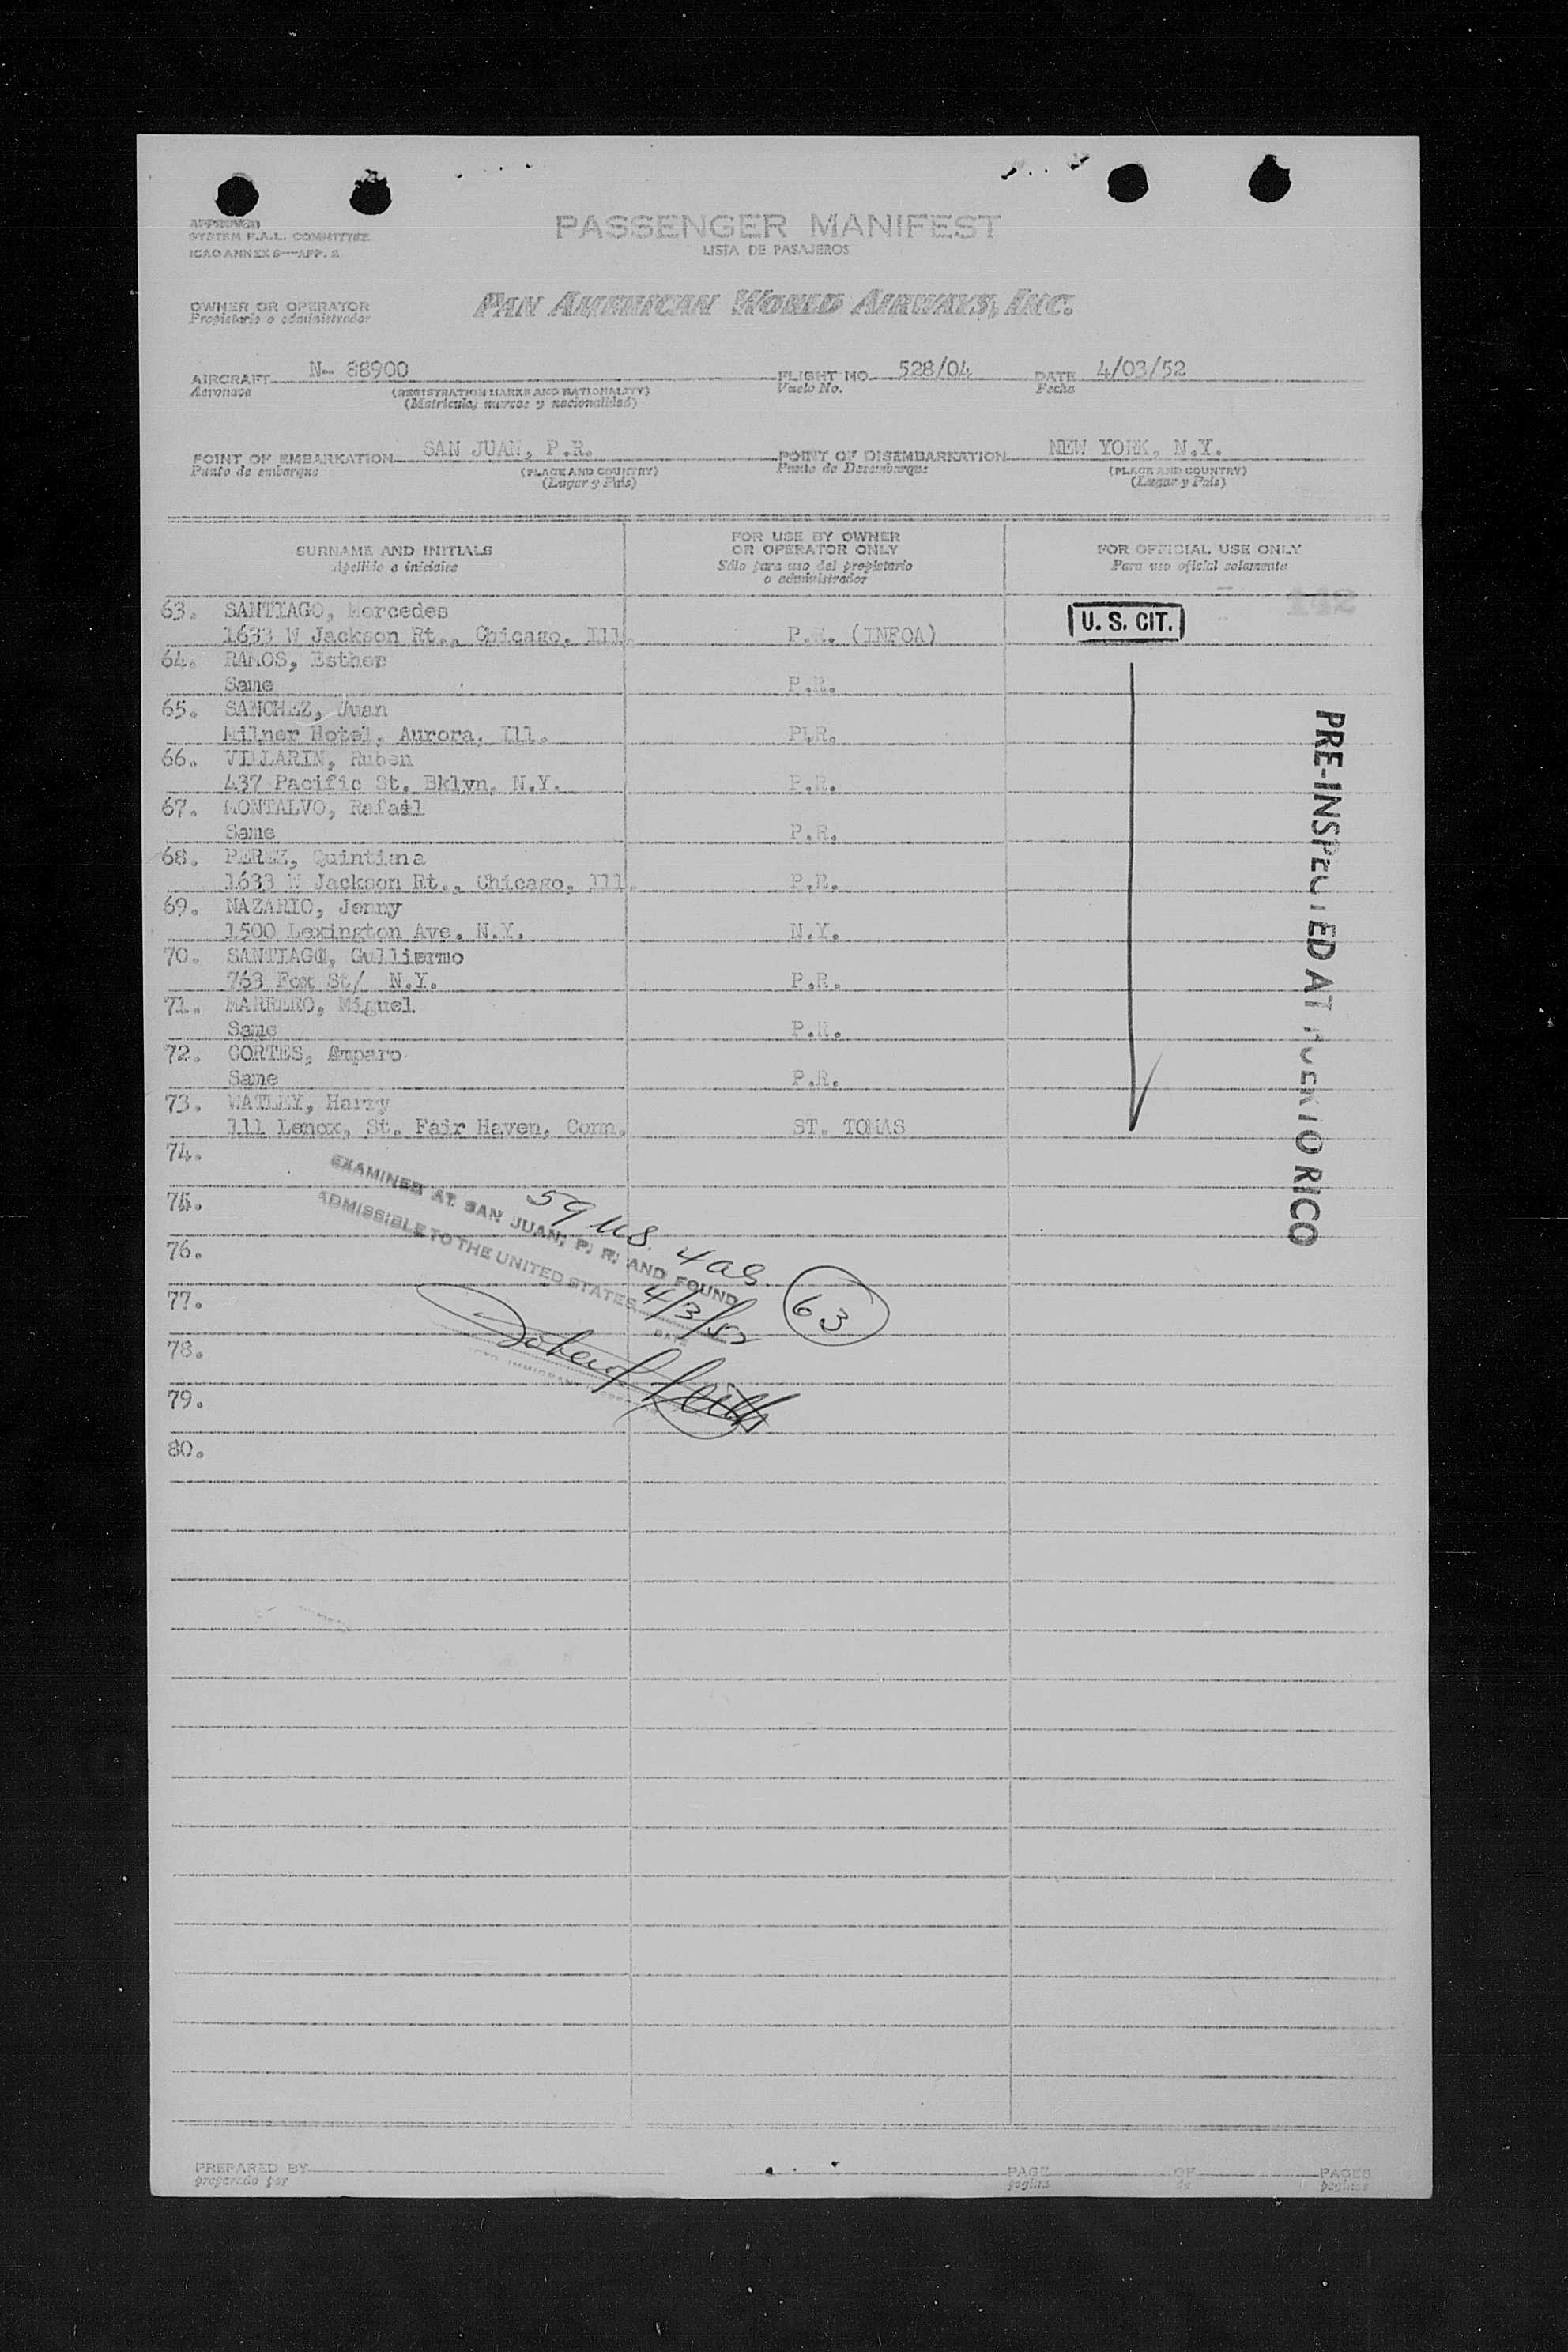 APPROVED
SYSTEM F.A.L. COMMITTEE
ICAO ANNEX 9—APP. 2
PASSENGER MANIFEST
LISTA DE PASAJEROS
OWNER OR OPERATOR
Propietario o administrador
PAN AMERICAN WORLD AIRWAYS, INC.
AIRCRAFT N- 88900
Aeronave
(REGISTRATION MARKS AND NATIONALITY)
(Matricula, marcas y nacionalidad)
FLIGHT NO. 528/04
Vuelo No.
DATE 4/03/52
Fecha
POINT OF EMBARKATION SAN JUAN, P.R.
Punto de embarque
(PLACE AND COUNTRY)
(Lugar y País)
POINT OF DISEMBARKATION NEW YORK, N.Y.
Punto de Desembarque
(PLACE AND COUNTRY)
(Lugar y País)
SURNAME AND INITIALS
Apellido e iniciales
FOR USE BY OWNER
OR OPERATOR ONLY
Sólo para uso del propietario
o administrador
FOR OFFICIAL USE ONLY
Para uso oficial solamente
142
63. SANTIAGO, Mercedes
1633 W Jackson Rt., Chicago, Ill. P.R. (INFOA)
U. S. CIT.
64. RAMOS, Esther
Same P.R.
65. SANCHEZ, Juan
Milner Hotel, Aurora, Ill. P.R.
66. VILLARIN, Ruben
437 Pacific St. Bklyn, N.Y. P.R.
67. MONTALVO, Rafael
Same P.R.
68. PEREZ, Quintina
1633 W Jackson Rt., Chicago, Ill. P.R.
69. NAZARIO, Jenny
1500 Lexington Ave. N.Y. N.Y.
70. SANTIAGO, Gulliermo
763 Fox St/ N.Y. P.R.
71. MARRERO, Miguel
Same P.R.
72. CORTES, Amparo
Same P.R.
73. WATLEY, Harry
111 Lenox, St. Fair Haven, Conn. ST. TOMAS
PRE-INSPECTED AT PUERTO RICO
74.
75.
76.
77.
78.
79.
80.
EXAMINED AT SAN JUAN, P. R. AND FOUND
ADMISSIBLE TO THE UNITED STATES 4/3/52
DATE
59 US. 4 as.
63
PREPARED BY
preparado por
PAGE OF PAGES
pagina de paginas